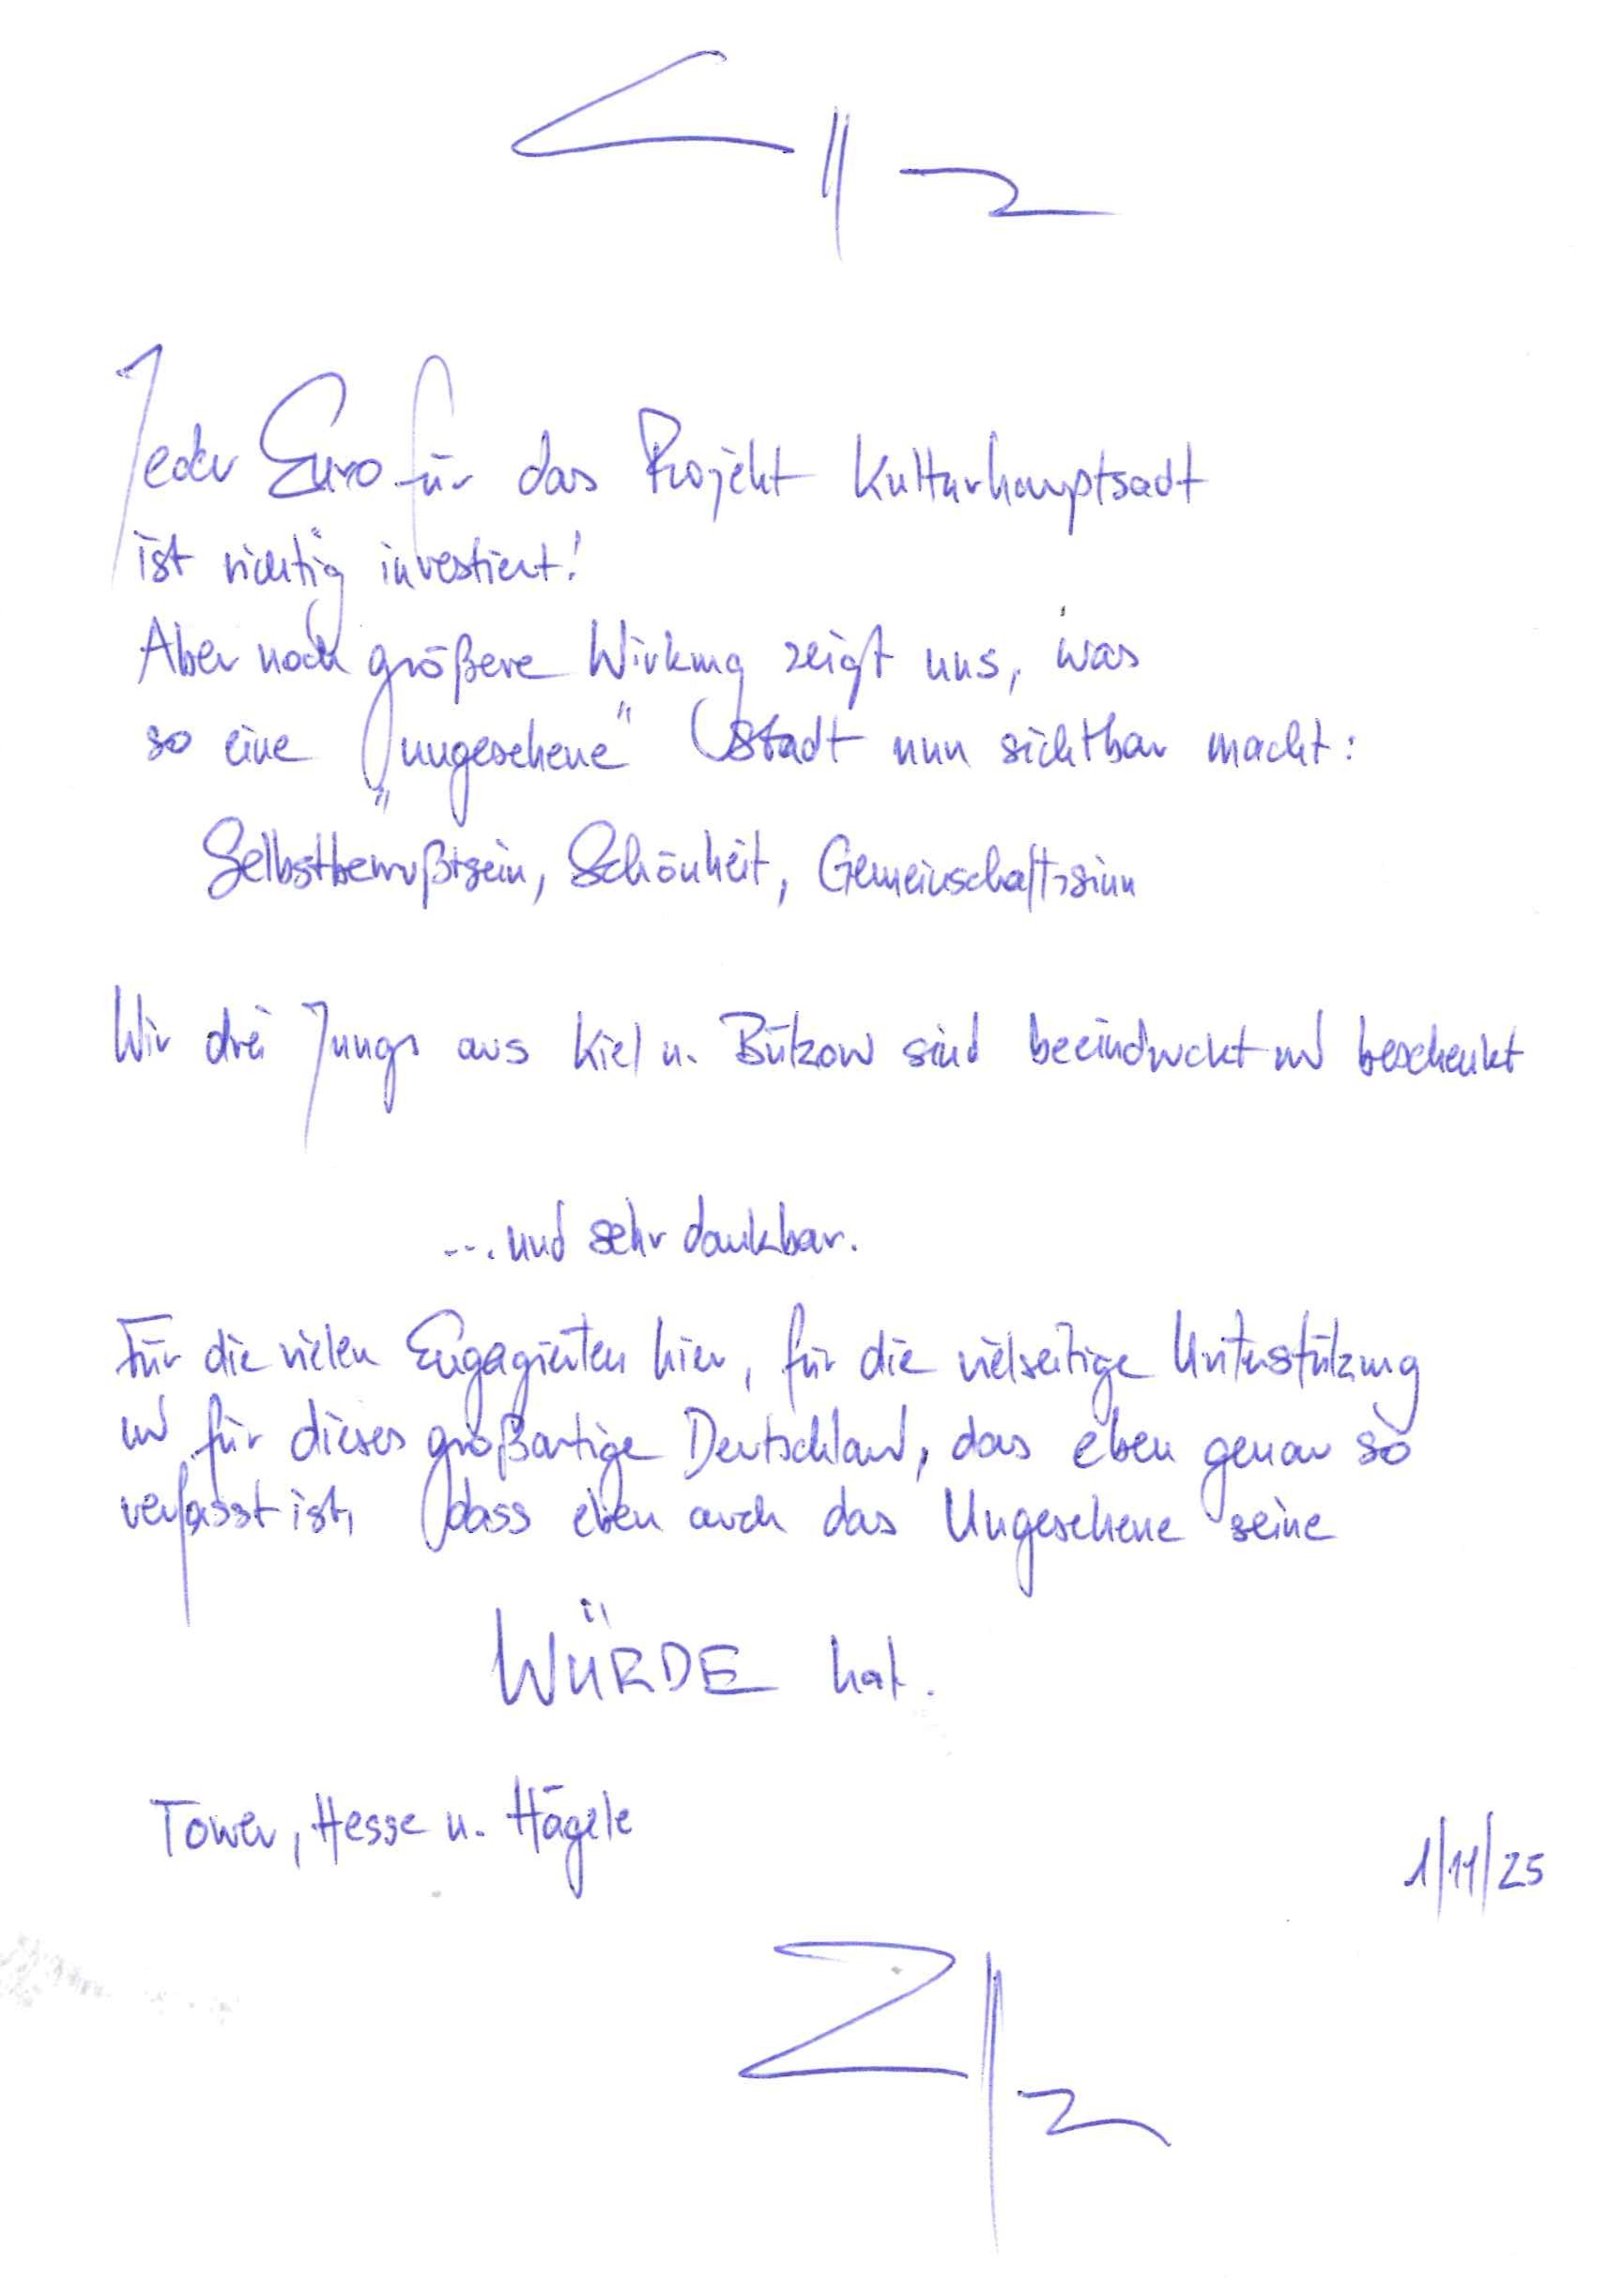 Jeder Euro für das Projekt Kulturhauptsadt
ist richtig investiert!
Aber noch größere Wirkung zeigt uns, was
so eine „ungesehene“ Stadt nun sichtbar macht:
Selbstbewußtsein, Schönheit, Gemeinschaftssinn
Wir drei Jungs aus Kiel u. Bützow sind beeindruckt und beschenkt
... und sehr dankbar.
Für die vielen Engagierten hier, für die vielseitige Unterstützung
und für dieses großartige Deutschland, das eben genau so
verfasst ist, dass eben auch das Ungesehene seine
WÜRDE hat.
Tower, Hesse u. Hägele
1/11/25